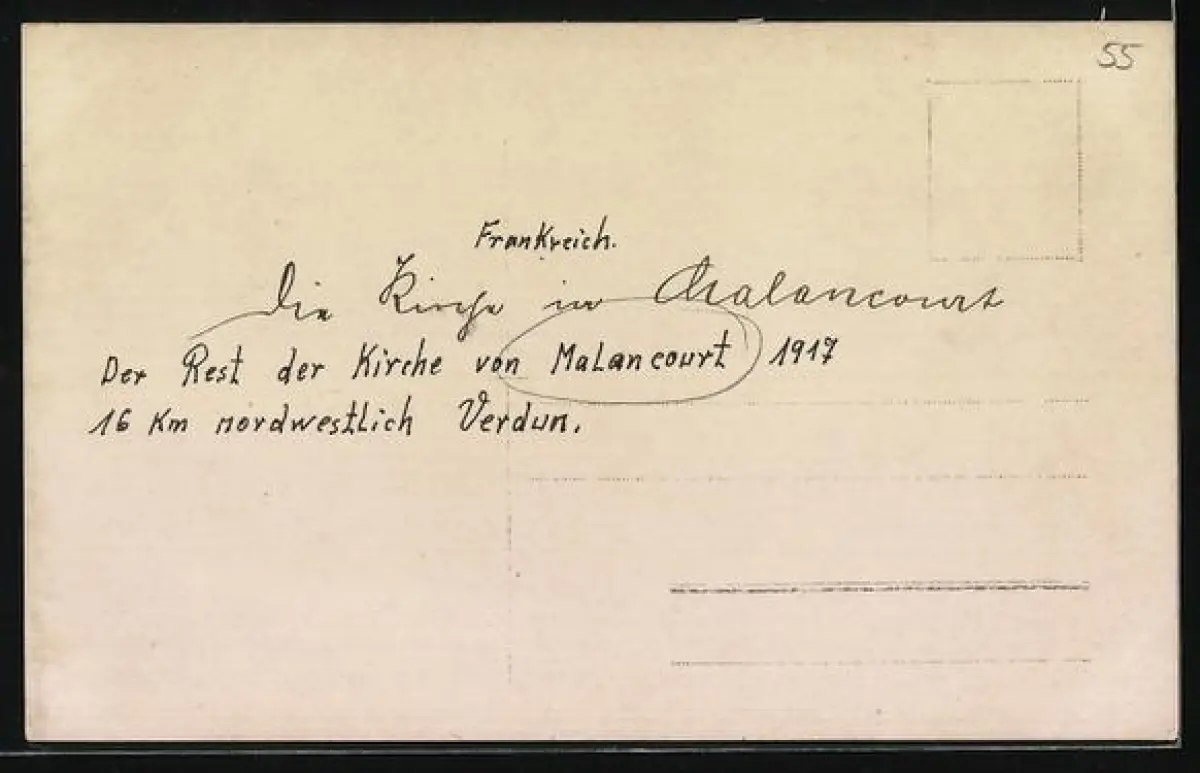 55
Frankreich.
Die Kirche in Malancourt
Der Rest der Kirche von Malancourt 1917
16 Km nordwestlich Verdun.